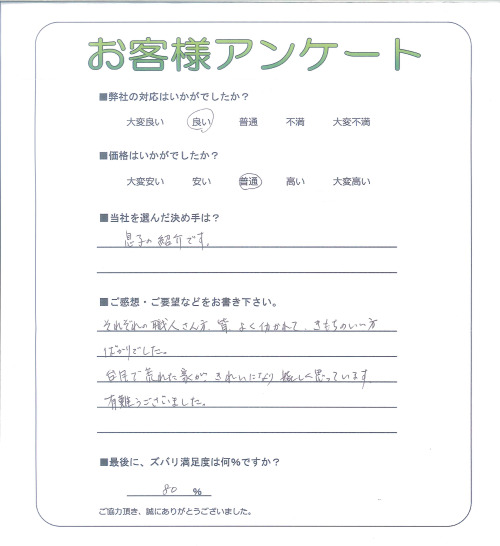 お客様アンケート
■弊社の対応はいかがでしたか？
大変良い 良い 普通 不満 大変不満
■価格はいかがでしたか？
大変安い 安い 普通 高い 大変高い
■当社を選んだ決め手は？
息子の紹介です。
■ご感想・ご要望などをお書き下さい。
それぞれの職人さん方、皆 よく仂かれて、きもちのいい方
ばかりでした。
台風で荒れた家が、きれいになり 嬉しく思っています。
有難うございました。
■最後に、ズバリ満足度は何%ですか？
80 %
ご協力頂き、誠にありがとうございました。